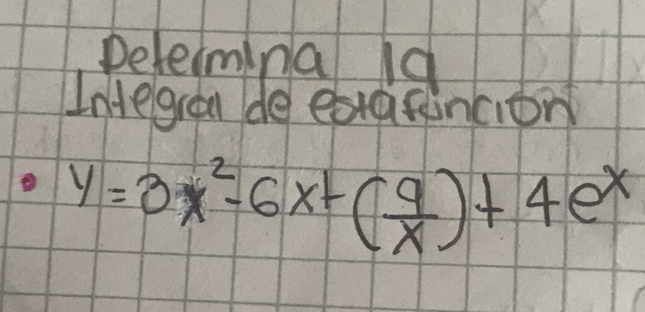 Determina la
Integral de esta función
• y = 3x² - 6x + (9/x) + 4e^x